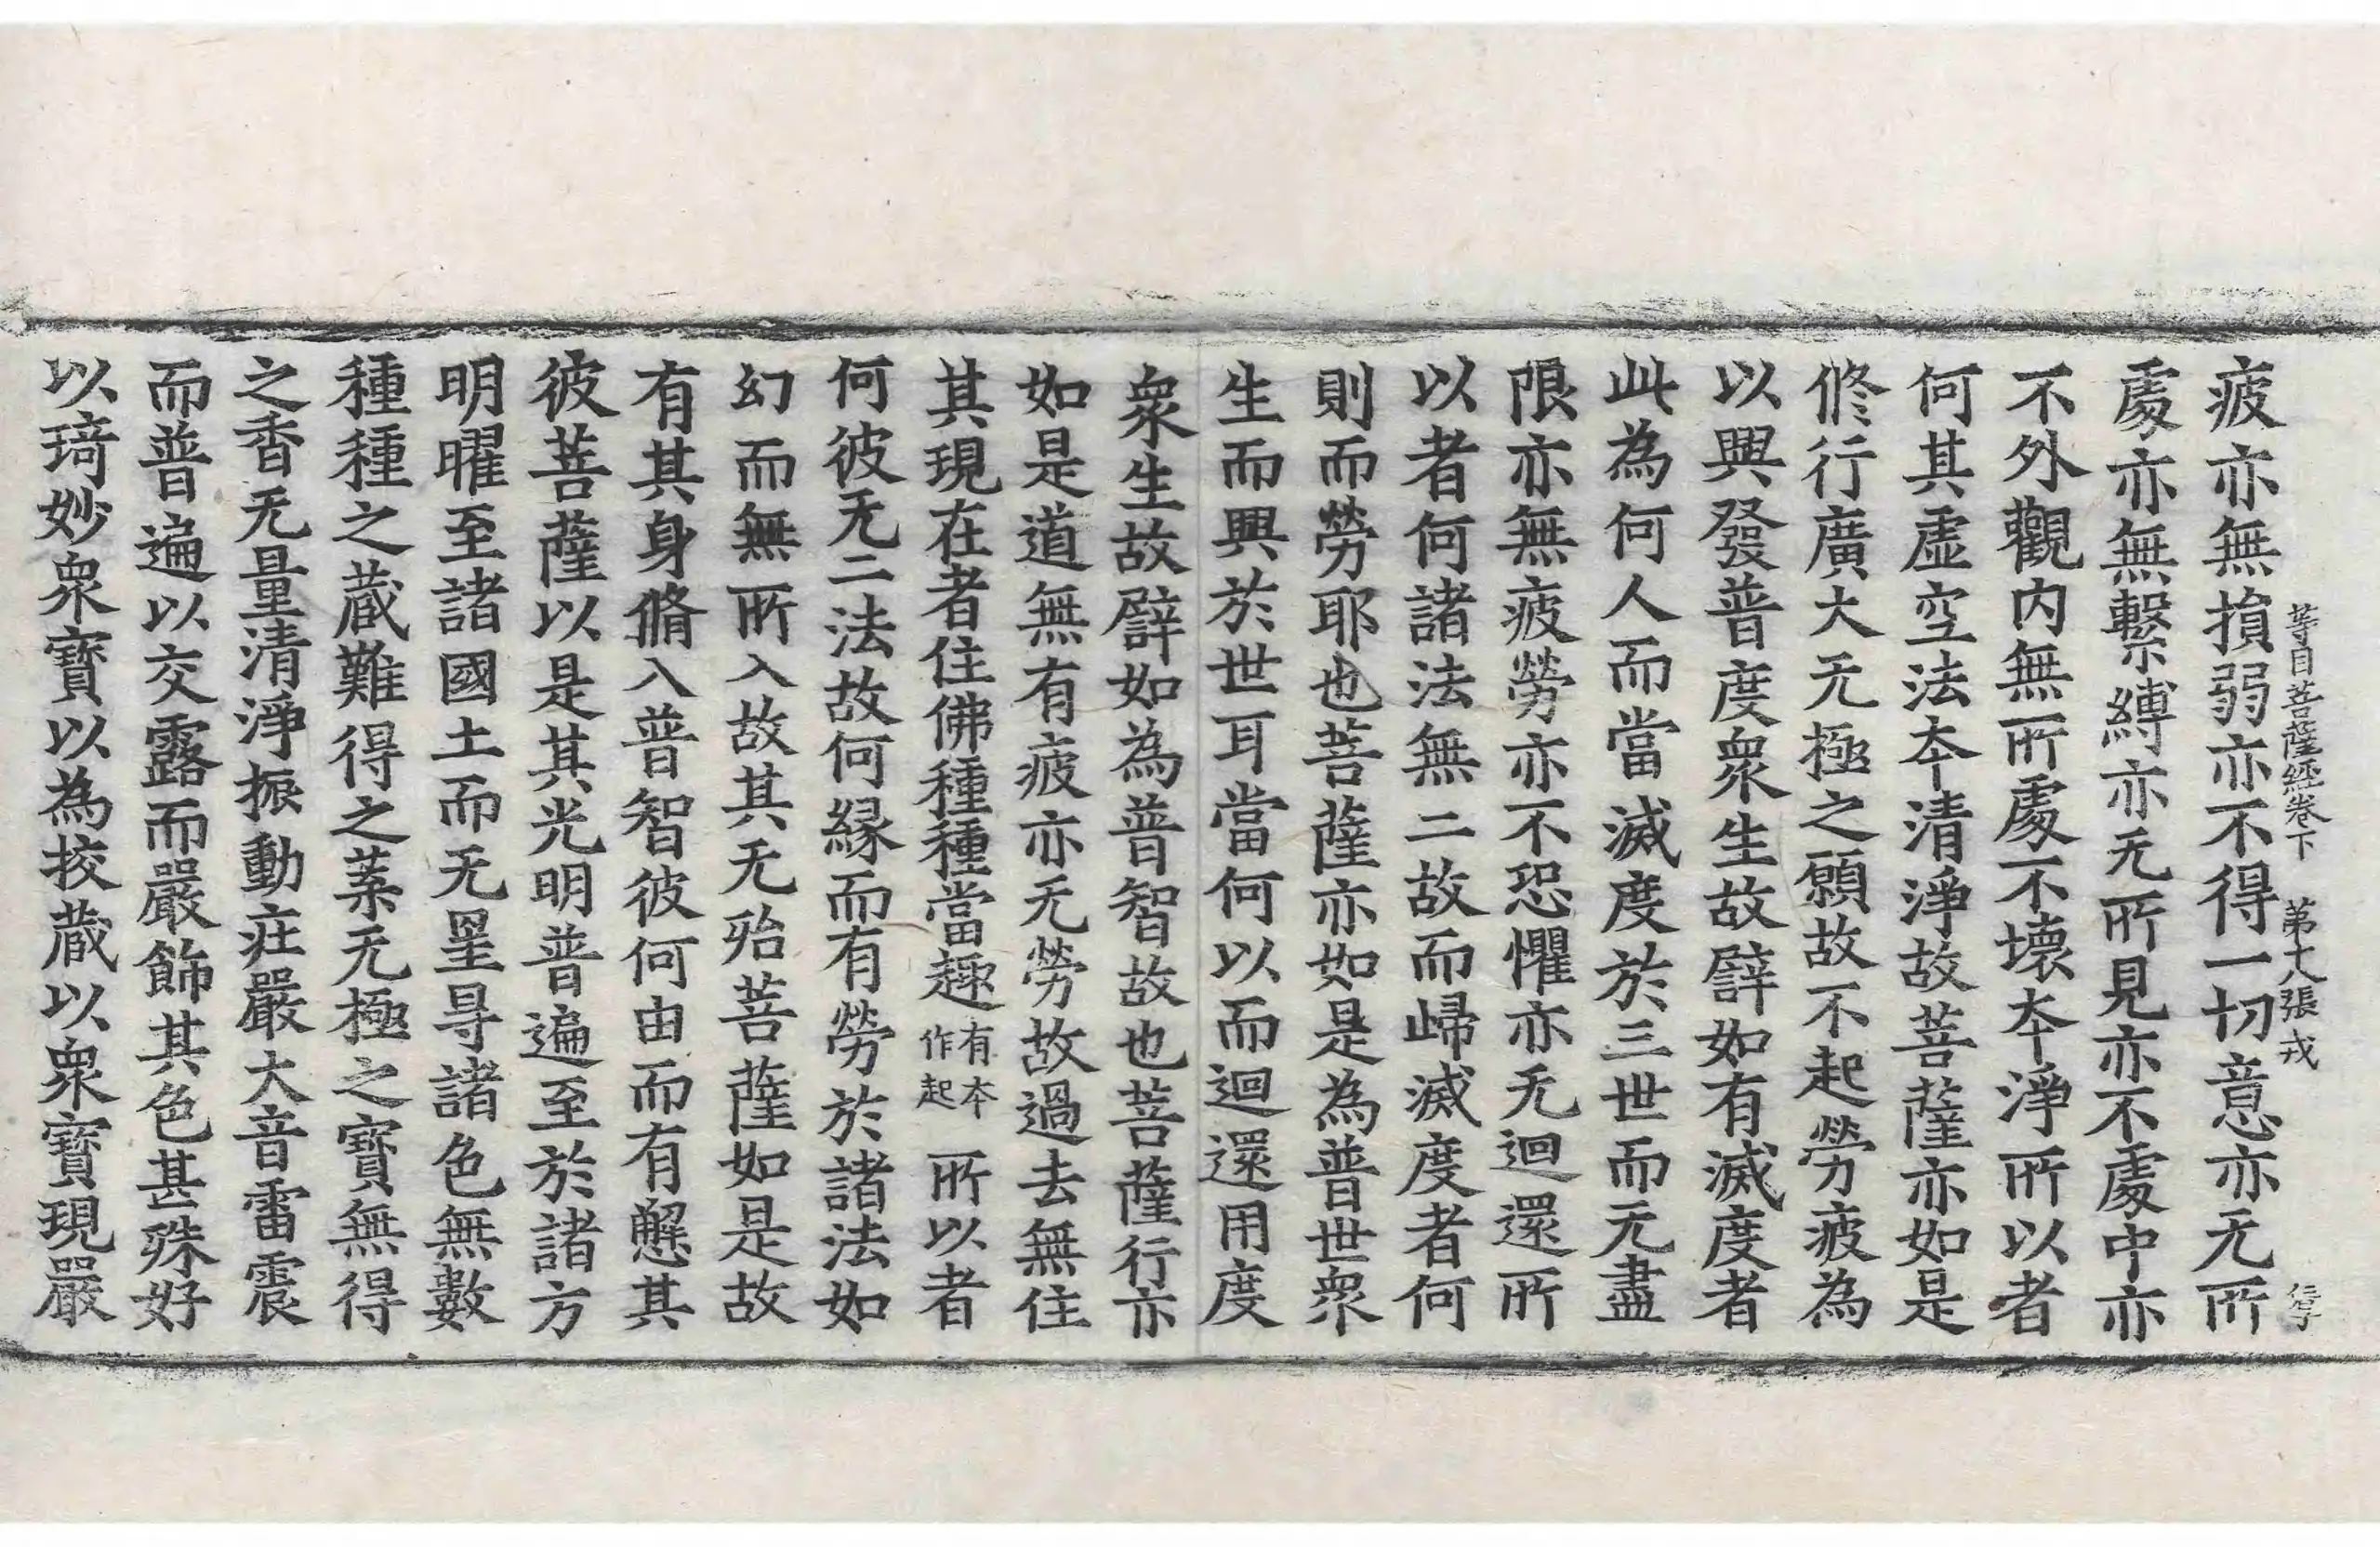 等目菩薩經卷下　第十八張　戎
疲亦無損弱亦不得一切意亦无所
處亦無繫縛亦无所見亦不處中亦
不外觀内無所處不壞夲淨所以者
何其虛空法夲清淨故菩薩亦如是
修行廣大无極之願故不起勞疲為
以興發普度衆生故譬如有滅度者
此為何人而當滅度於三世而无盡
限亦無疲勞亦不恐懼亦无迴還所
以者何諸法無二故而歸滅度者何
則而勞耶也菩薩亦如是為普世衆
生而興於世耳當何以而迴還用度
衆生故譬如為普智故也菩薩行亦
如是道無有疲亦无勞故過去無住
其現在者住佛種種當趣有夲作起所以者
何彼无二法故何緣而有勞於諸法如
幻而無所入故其无殆菩薩如是故
有其身脩入普智彼何由而有懈其
彼菩薩以是其光明普遍至於諸方
明曜至諸國土而无罣㝵諸色無數
種種之蔵難得之葉无極之寶無得
之香无量清淨振動莊嚴大音雷震
而普遍以交露而嚴飾其色甚殊好
以琦妙衆寶以為挍蔵以衆寶現嚴